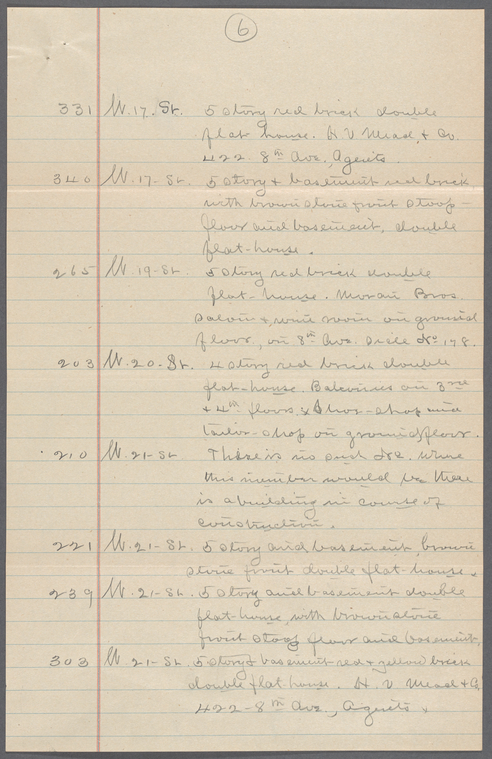 6
331 W. 17. St. 5 story red brick double
flat house. H. V. Mead, & Co.
422. 8th Ave., Agents.
340 W. 17- St. 5 story & basement red brick
with brownstone front stoop-
floor and basement, double
flat-house.
265 W. 19- St. 5 story red brick double
flat-house. Moran Bros.
saloon & wine room on ground
floor, on 8th Ave. side No 178.
203 W. 20- St. 4 story red brick double
flat-house. Balconies on 3rd
& 4th floors, & Shoe-shop and
tailor-shop on ground floor.
210 W. 21- St There is no such No. where
this number would be there
is a building in course of
construction.
221 W. 21- St. 5 story and basement, brown
stone front double flat-house.
239 W. 21- St. 5 story and basement double
flat-house, with brownstone
front stoop floor and basement,
303 W. 21- St. 5 story & basement red & yellow brick
double flat house. H. V. Mead & Co
422- 8th Ave., Agents